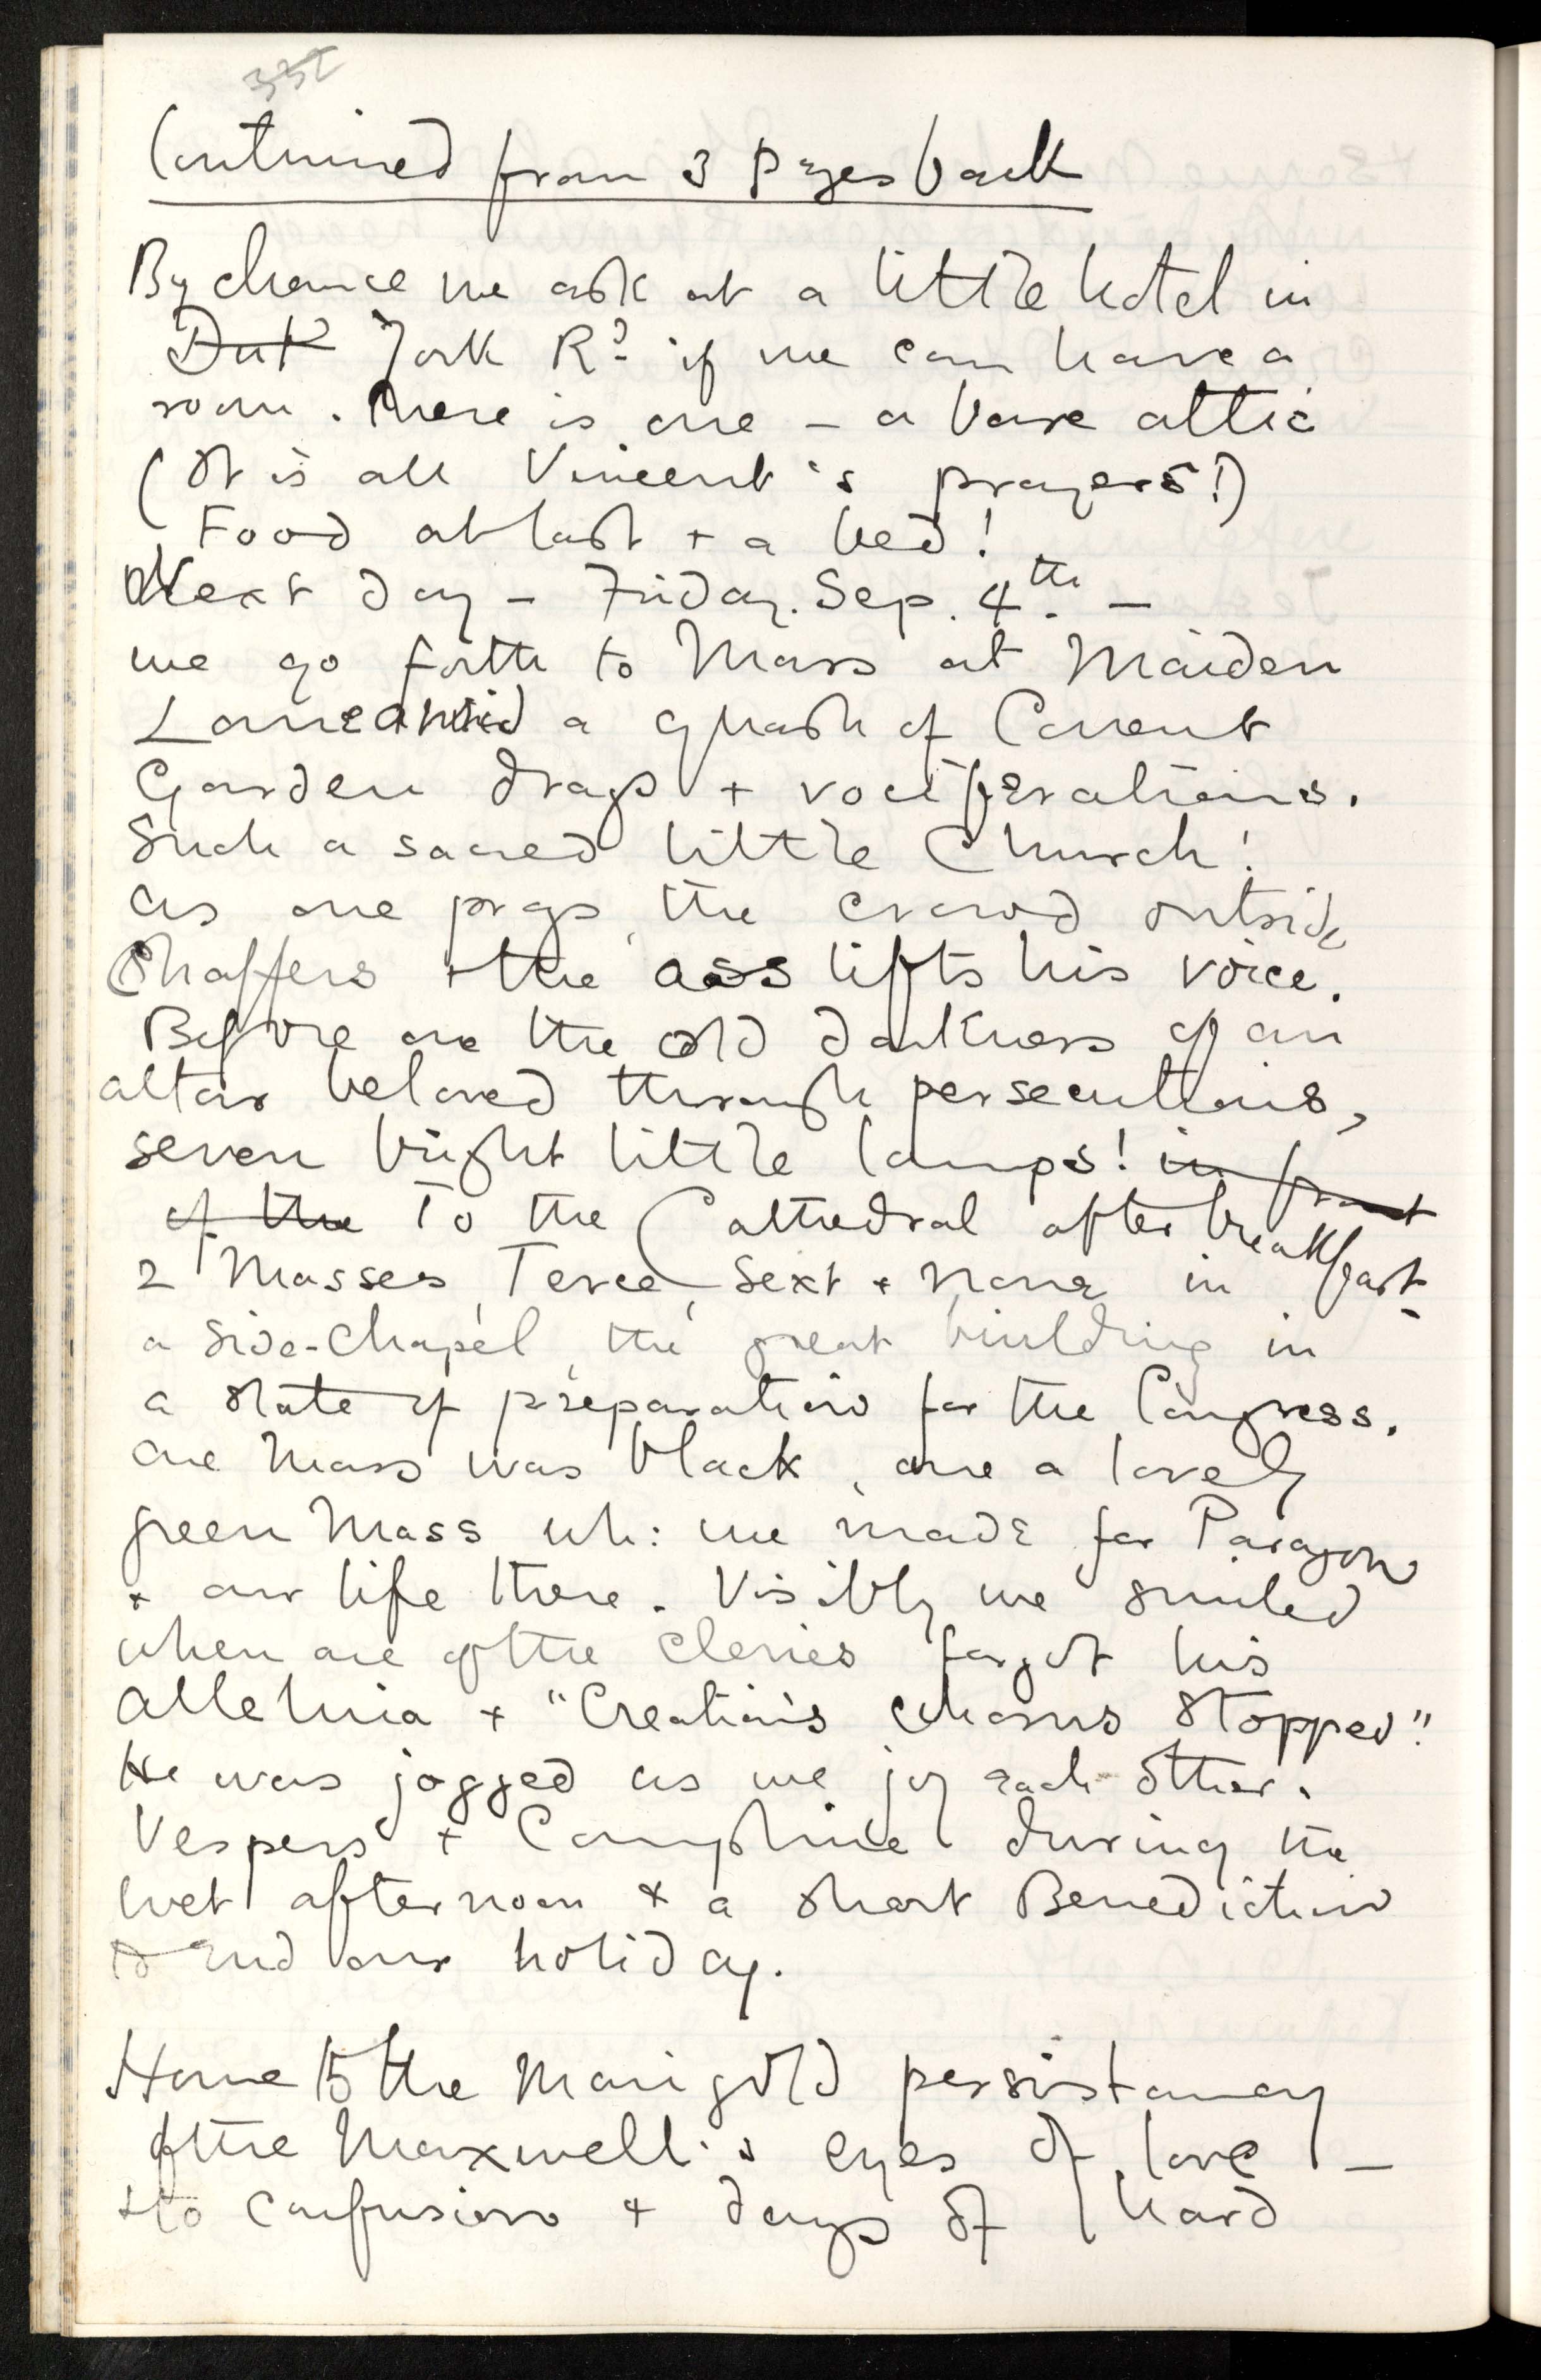 Continued from 3 pages back
By chance we ask at a little hotel in
Duk York Rd if we can have a
room. There is one – a bare attic
(It is all Vincent's prayers!)
Food at last + a bed!
Next day – Friday. Sep. 4th. –
we go forth to Mass at Maiden
Lane amid a quash of Covent
Garden drags + vociferations.
Such a sacred little Church!
As one prays, the crowd outside
Chaffers + the ass lifts his voice.
Before one the old darkness of an
altar beloved through persecutions,
seven bright little lamps! in front
of the To the Cathedral after breakfast.
2 Masses, Terce, Sext + None in
a side-Chapel, the great building in
a state of preparation for the Congress.
One Mass was black, one a lovely
green Mass wh: we made for Paragon
+ our life there. Visibly we smiled
when one of the clerics forgot his
Alleluia + "Creation's chorus stopped"!
He was jogged as we jog each other.
Vespers + Compline during the
wet afternoon + a short Benediction
to end our holiday.
Home to the Marigold persistancy
of the Maxwell's eyes of love –
+ to confusion + days of hard